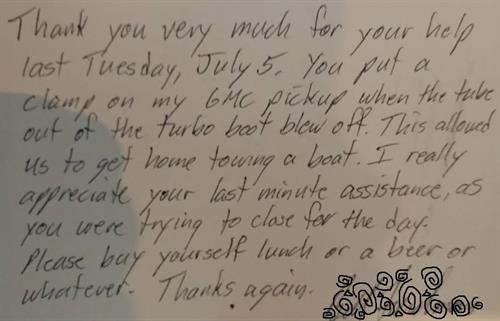 Thank you very much for your help
last Tuesday, July 5. You put a
clamp on my GMC pickup when the tube
out of the turbo boot blew off. This allowed
us to get home towing a boat. I really
appreciate your last minute assistance, as
you were trying to close for the day.
Please buy yourself lunch or a beer or
whatever. Thanks again.